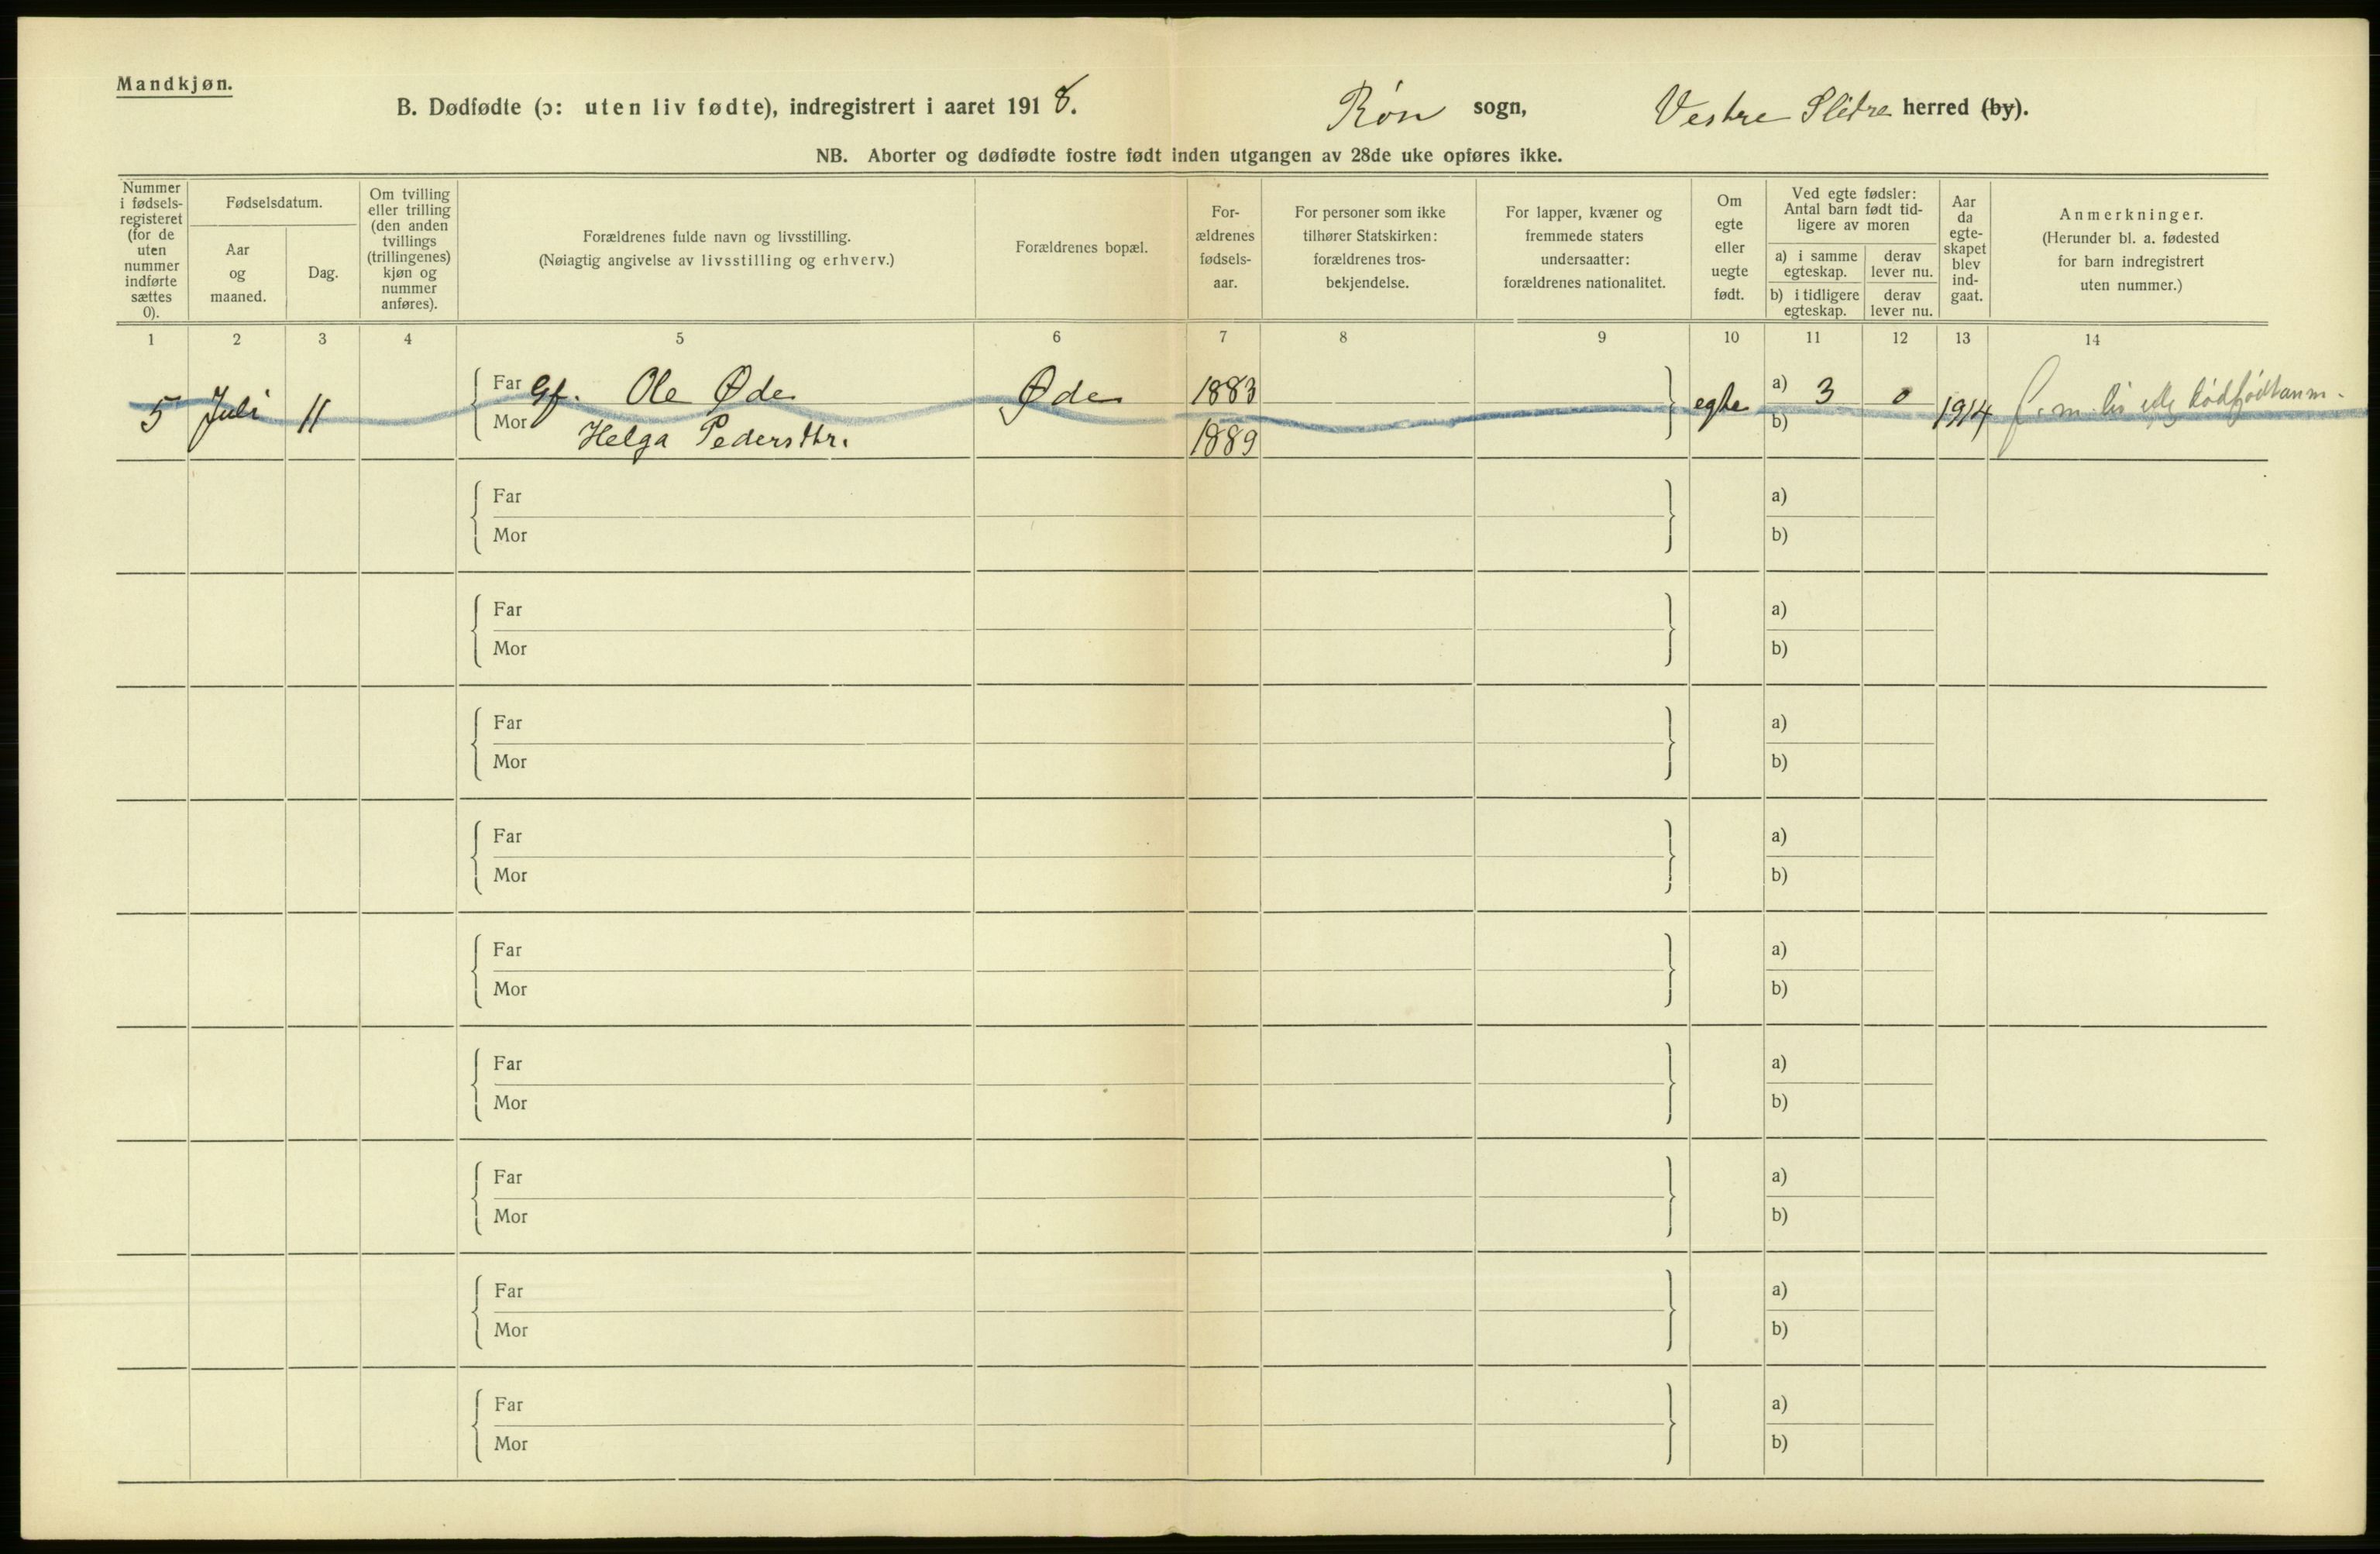 Mandkjøn.
B. Dødfødte (ɔ: uten liv fødte), indregistrert i aaret 1918. Røn sogn, Vestre Slidre herred (by).
NB. Aborter og dødfødte fostre født inden utgangen av 28de uke opføres ikke.
Nummer
i fødsels-
registeret
(for de
uten
nummer
indførte
sættes
0).
Fødselsdatum.
Aar
og
maaned.
Dag.
Om tvilling
eller trilling
(den anden
tvillings
(trillingenes)
kjøn og
nummer
anføres).
Forældrenes fulde navn og livsstilling.
(Nøiagtig angivelse av livsstilling og erhverv.)
Forældrenes bopæl.
For-
ældrenes
fødsels-
aar.
For personer som ikke
tilhører Statskirken:
forældrenes tros-
bekjendelse.
For lapper, kvæner og
fremmede staters
undersaatter:
forældrenes nationalitet.
Om
egte
eller
uegte
født.
Ved egte fødsler:
Antal barn født tid-
ligere av moren
a) i samme
egteskap.
derav
lever nu.
b) i tidligere
egteskap.
derav
lever nu.
Aar
da
egte-
skapet
blev
ind-
gaat.
Anmerkninger.
(Herunder bl. a. fødested
for barn indregistrert
uten nummer.)
1 2 3 4 5 6 7 8 9 10 11 12 13 14
5 Juli 11 Far Gf. Ole Øde Øde 1883 egte a) 3 0 1914
Mor Helga Pedersdtr. 1889 b)
Far a)
Mor b)
Far a)
Mor b)
Far a)
Mor b)
Far a)
Mor b)
Far a)
Mor b)
Far a)
Mor b)
Far a)
Mor b)
Far a)
Mor b)
Far a)
Mor b)